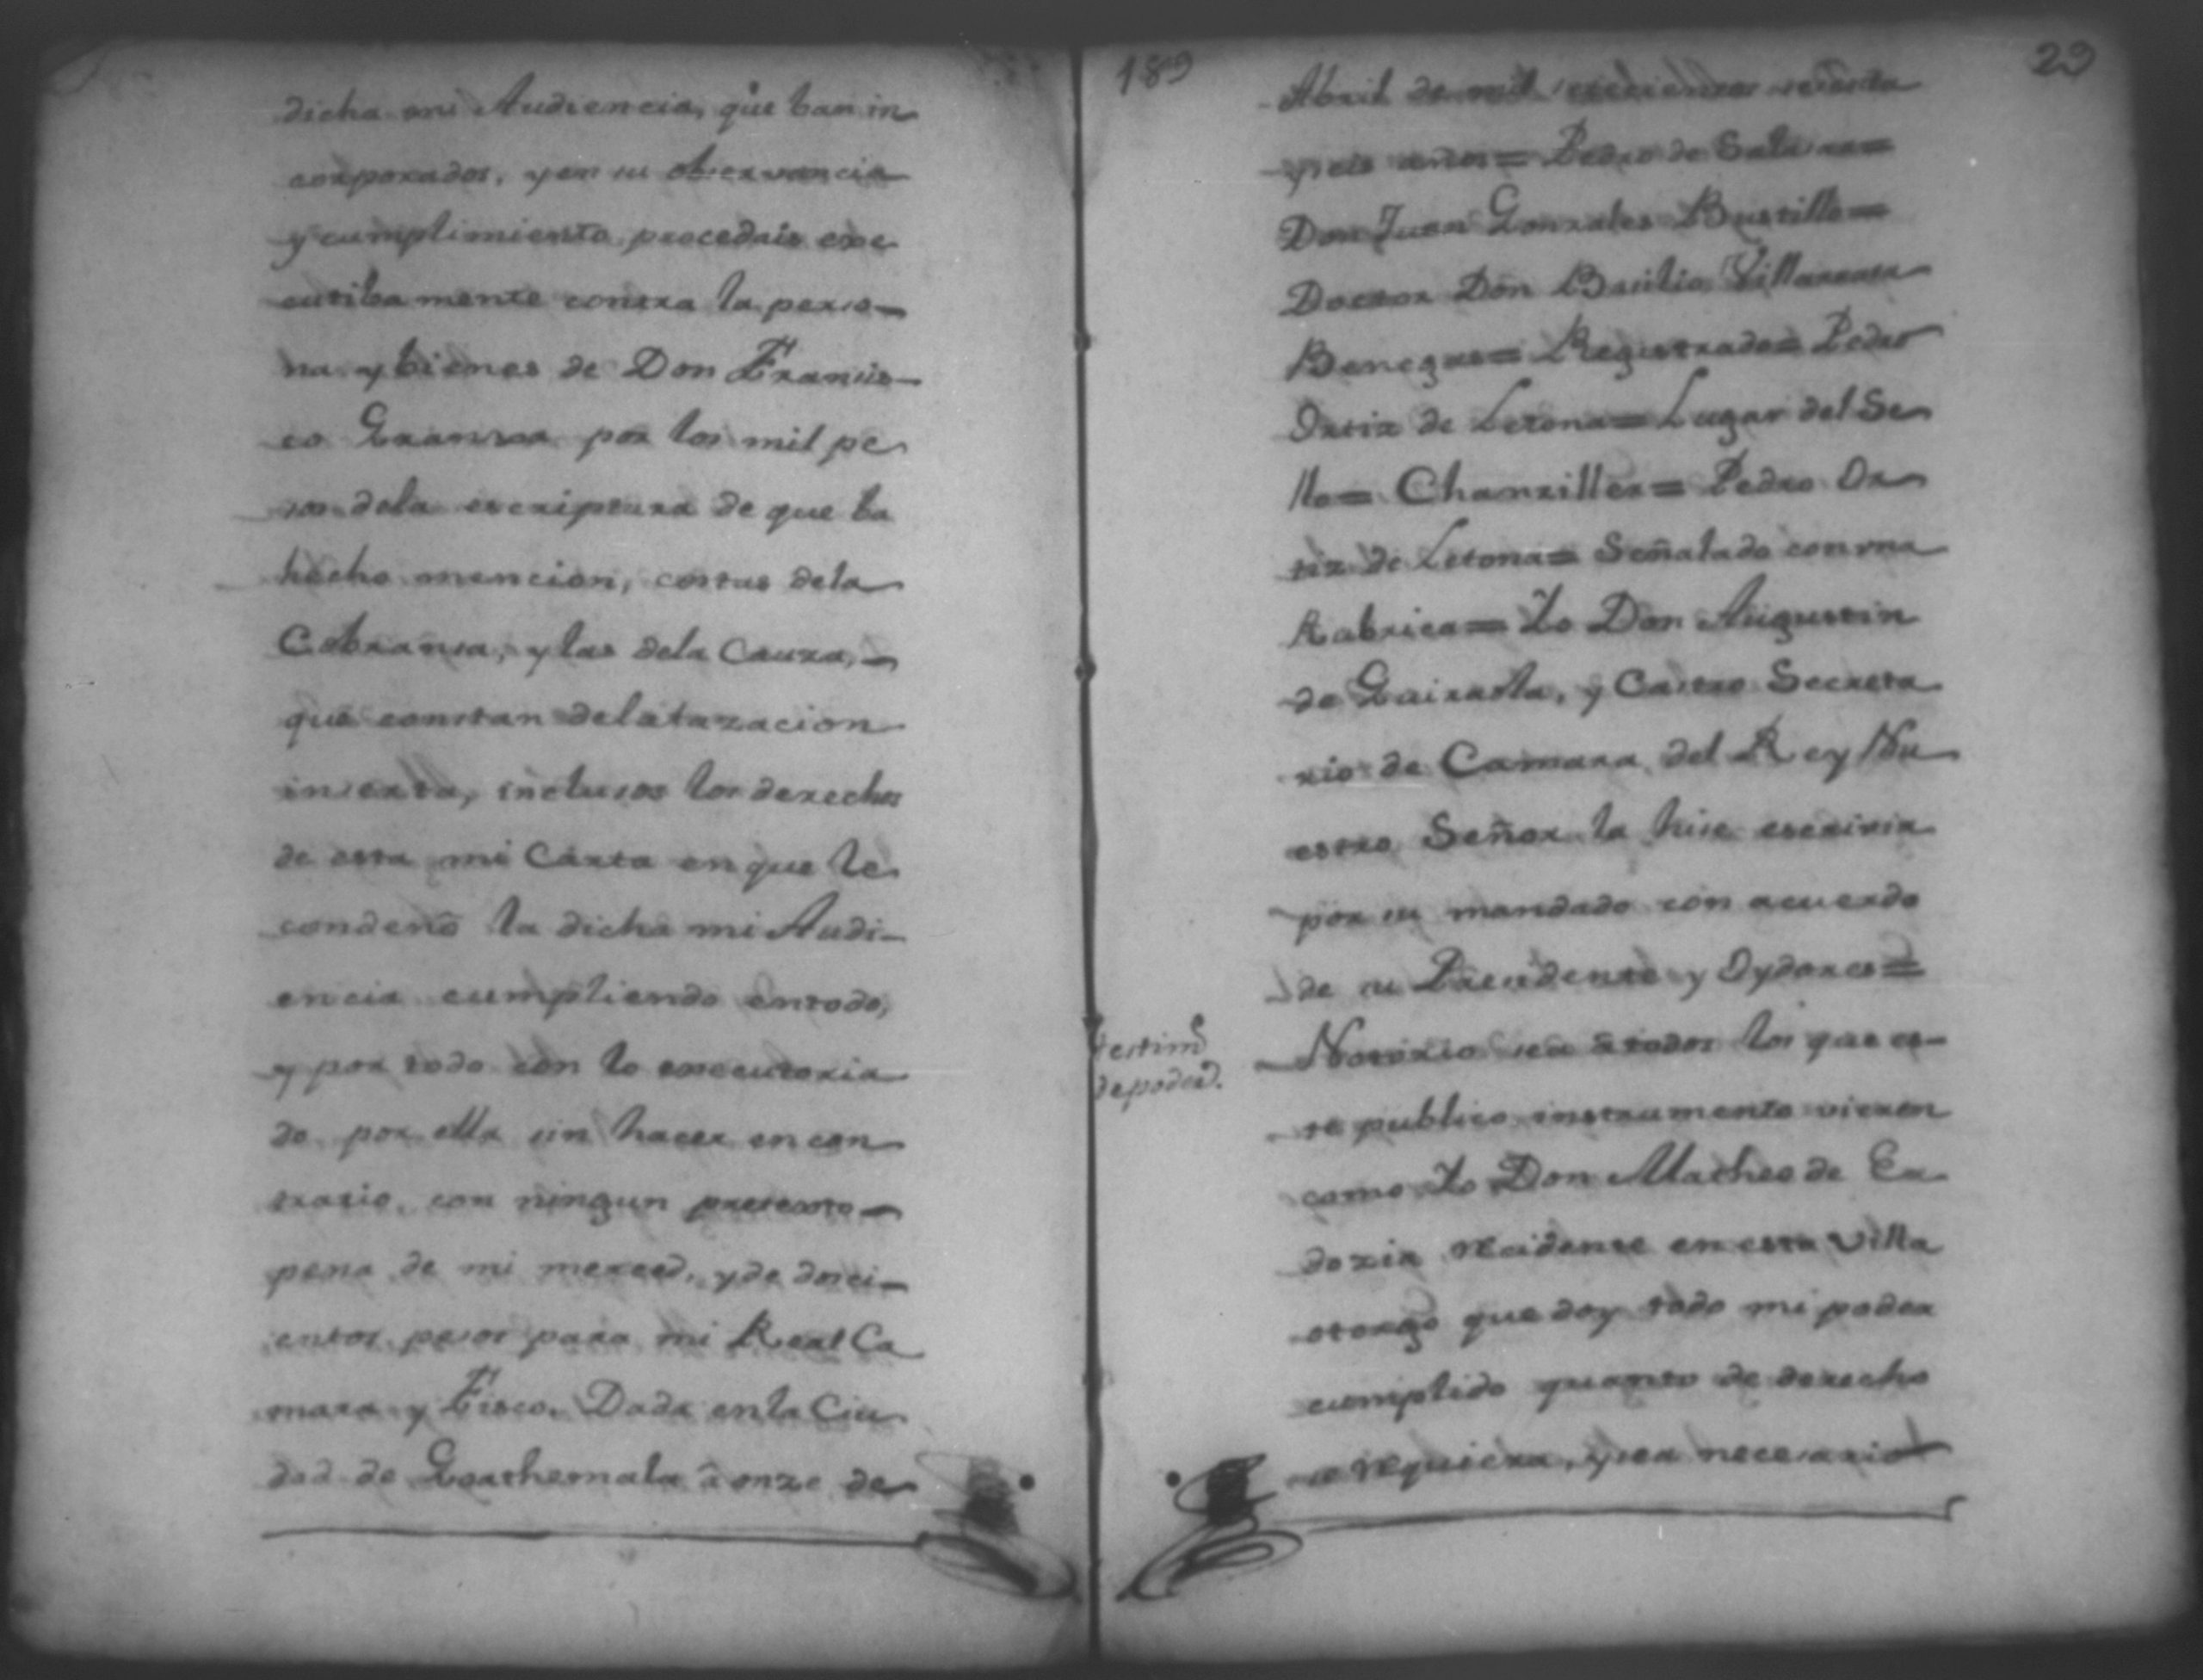 dicha mi Audiencia, que ban in
corporados, y en su observancia
y cumplimiento, procedais exe
cutibamente contra la perso
na y bienes de Don Francis
co Granxar por los mil pe
sos dela escriptura de que ba
hecho mencion, costas dela
Cobransa, y las dela Causa,
que constan dela tazacion
inserta, inclusos los derechos
de esta mi Carta en que le
condenó la dicha mi Audi
encia cumpliendo entodo,
y por todo con lo executoria
do por ella sin hacer en con
trario, con ningun pretexto
pena de mi merced, y de doci
entos pesos para mi Real Ca
mara y Fisco. Dada en la Ciu
dad de Goathemala â onze de
189
23
Abril de mil setecientos setenta
y seis años = Pedro de Salazar =
Don Juan Gonzales Bustillo =
Doctor Don Basilio Villarrasa
Benegas = Registrado = Pedro
Ortiz de Letona = Lugar del Se
llo = Chanziller = Pedro Or
tiz de Letona = Señalado con vna
Rubrica = Yo Don Augustin
de Guiraola, y Castro Secreta
rio de Camara del Rey Nu
estro Señor la hise escrivir
por su mandado con acuerdo
de su Presidente y Oydores =
testimº
de poder.
Notorio sea â todos los que es
te publico instrumento vieren
como Yo Don Matheo de Ca
dozia recidente en esta Villa
otorgo que doy todo mi poder
cumplido quanto de derecho
se requiera, y sea necesario